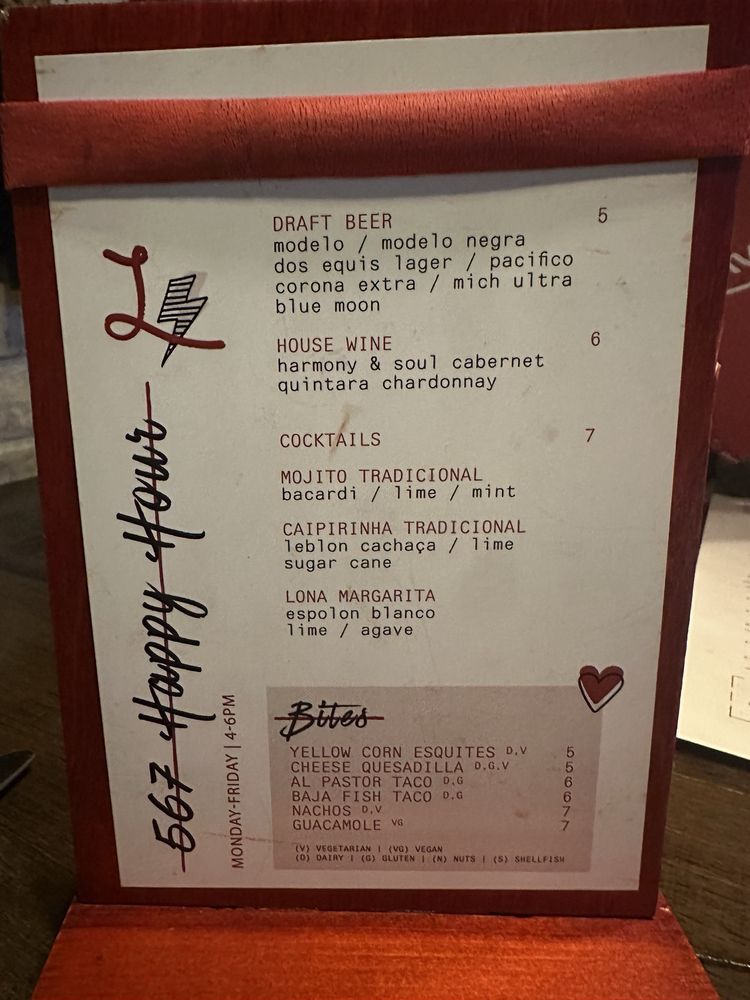 DRAFT BEER 5
modelo / modelo negra
dos equis lager / pacifico
corona extra / mich ultra
blue moon
HOUSE WINE 6
harmony & soul cabernet
quintara chardonnay
COCKTAILS 7
MOJITO TRADICIONAL
bacardi / lime / mint
CAIPIRINHA TRADICIONAL
leblon cachaça / lime
sugar cane
LONA MARGARITA
espolon blanco
lime / agave
L
567 Happy Hour
MONDAY-FRIDAY | 4-6PM
Bites
YELLOW CORN ESQUITES D,V 5
CHEESE QUESADILLA D,G,V 5
AL PASTOR TACO D,G 6
BAJA FISH TACO D,G 6
NACHOS D,V 7
GUACAMOLE VG 7
(V) VEGETARIAN | (VG) VEGAN
(D) DAIRY | (G) GLUTEN | (N) NUTS | (S) SHELLFISH